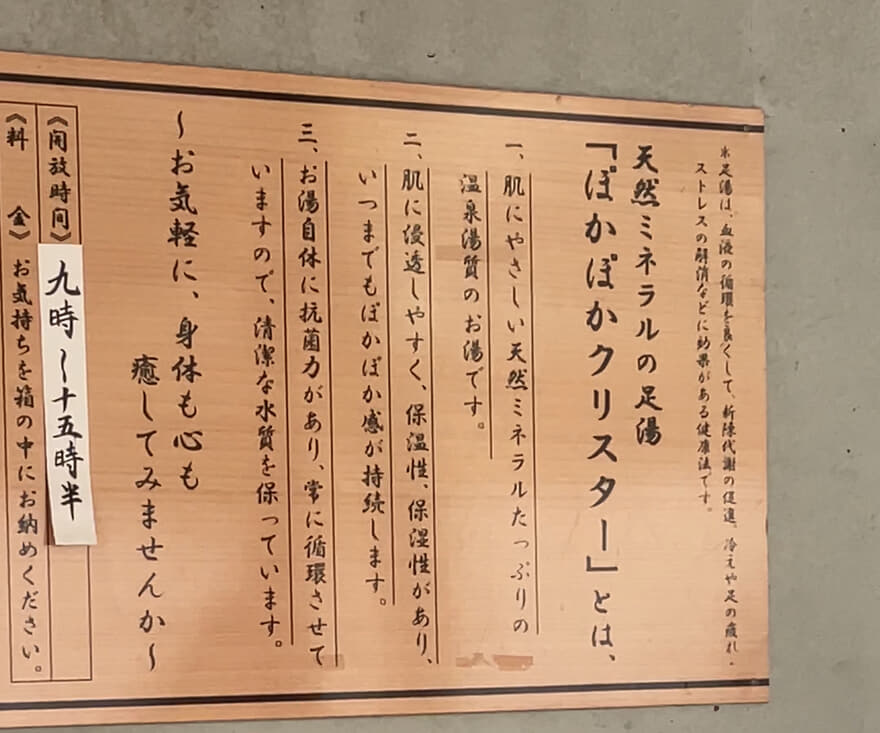 ※足湯は、血液の循環を良くして、新陳代謝の促進、冷えや足の疲れ・
ストレスの解消などに効果がある健康法です。
天然ミネラルの足湯
「ぽかぽかクリスター」とは、
一、肌にやさしい天然ミネラルたっぷりの
温泉湯質のお湯です。
二、肌に浸透しやすく、保温性、保湿性があり、
いつまでもぽかぽか感が持続します。
三、お湯自体に抗菌力があり、常に循環させて
いますので、清潔な水質を保っています。
～お気軽に、身体も心も
癒してみませんか～
《開放時間》九時～十五時半
《料 金》お気持ちを箱の中にお納めください。